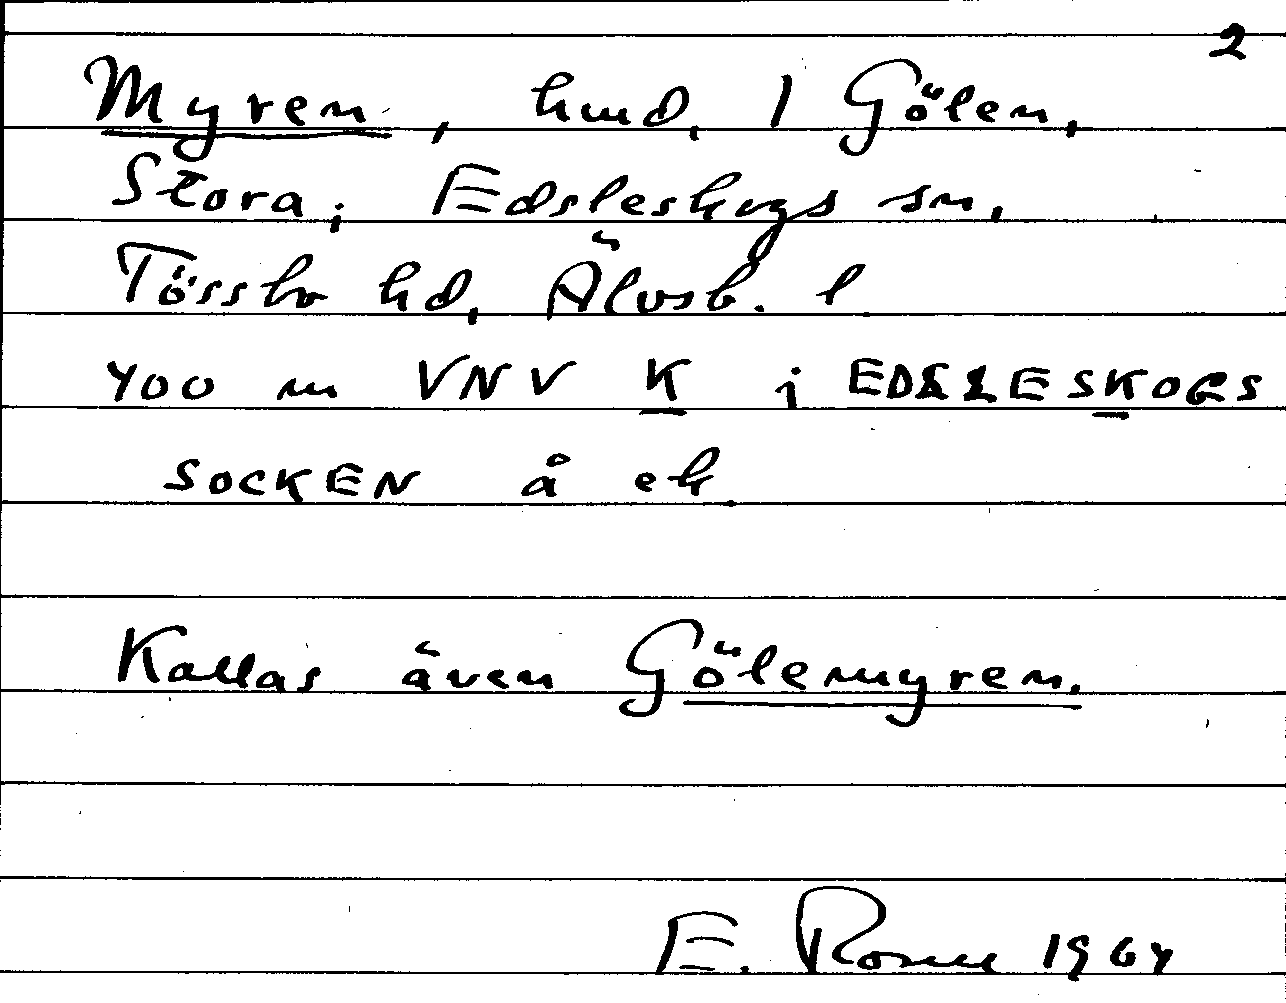 2
Myren, hmd, 1 Gölen,
Stora; Edsleskogs sn,
Tössbo hd, Älvsb. l
400 m VNV K i EDSLESKOGS
SOCKEN å ek.
Kallas även Gölemyren.
E. 1964